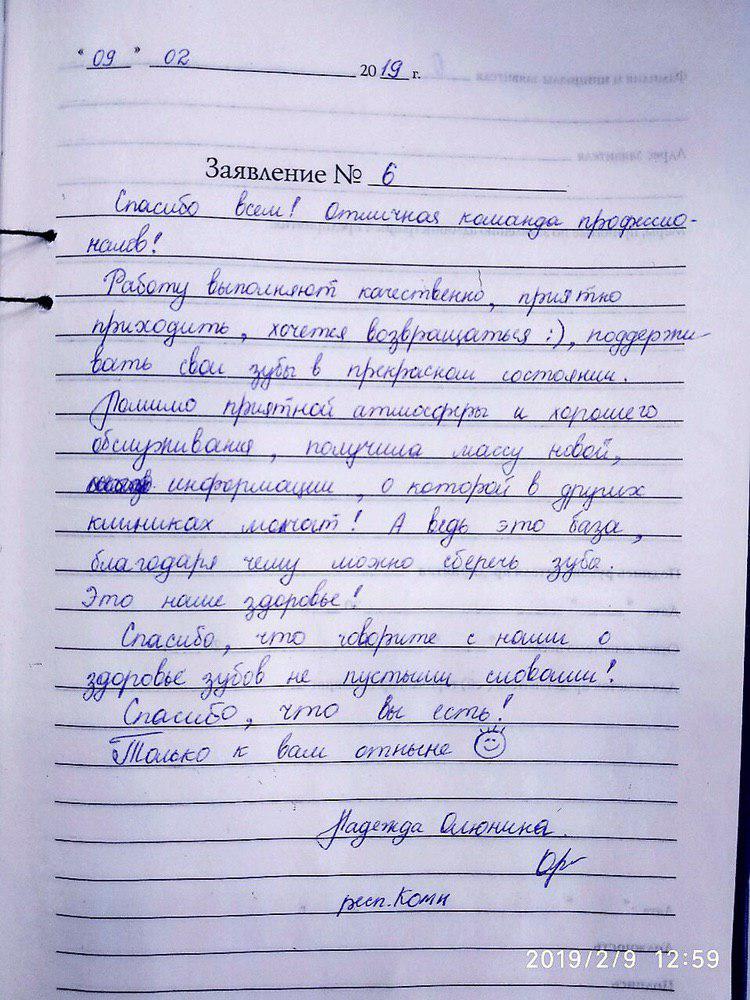 " 09 " 02 2019 г.
Заявление № 6
Спасибо всем! Отличная команда профессио-
налов!
Работу выполняют качественно, приятно
приходить, хочется возвращаться :), поддержи-
вать свои зубы в прекрасном состоянии.
Помимо приятной атмосферы и хорошего
обслуживания, получила массу новой,
информации, о которой в других
клиниках молчат! А ведь это база,
благодаря чему можно сберечь зубы.
Это наше здоровье!
Спасибо, что говорите с нами о
здоровье зубов не пустыми словами!
Спасибо, что вы есть!
Только к вам отныне
Надежда Олюнина.
респ. Коми
2019/2/9 12:59